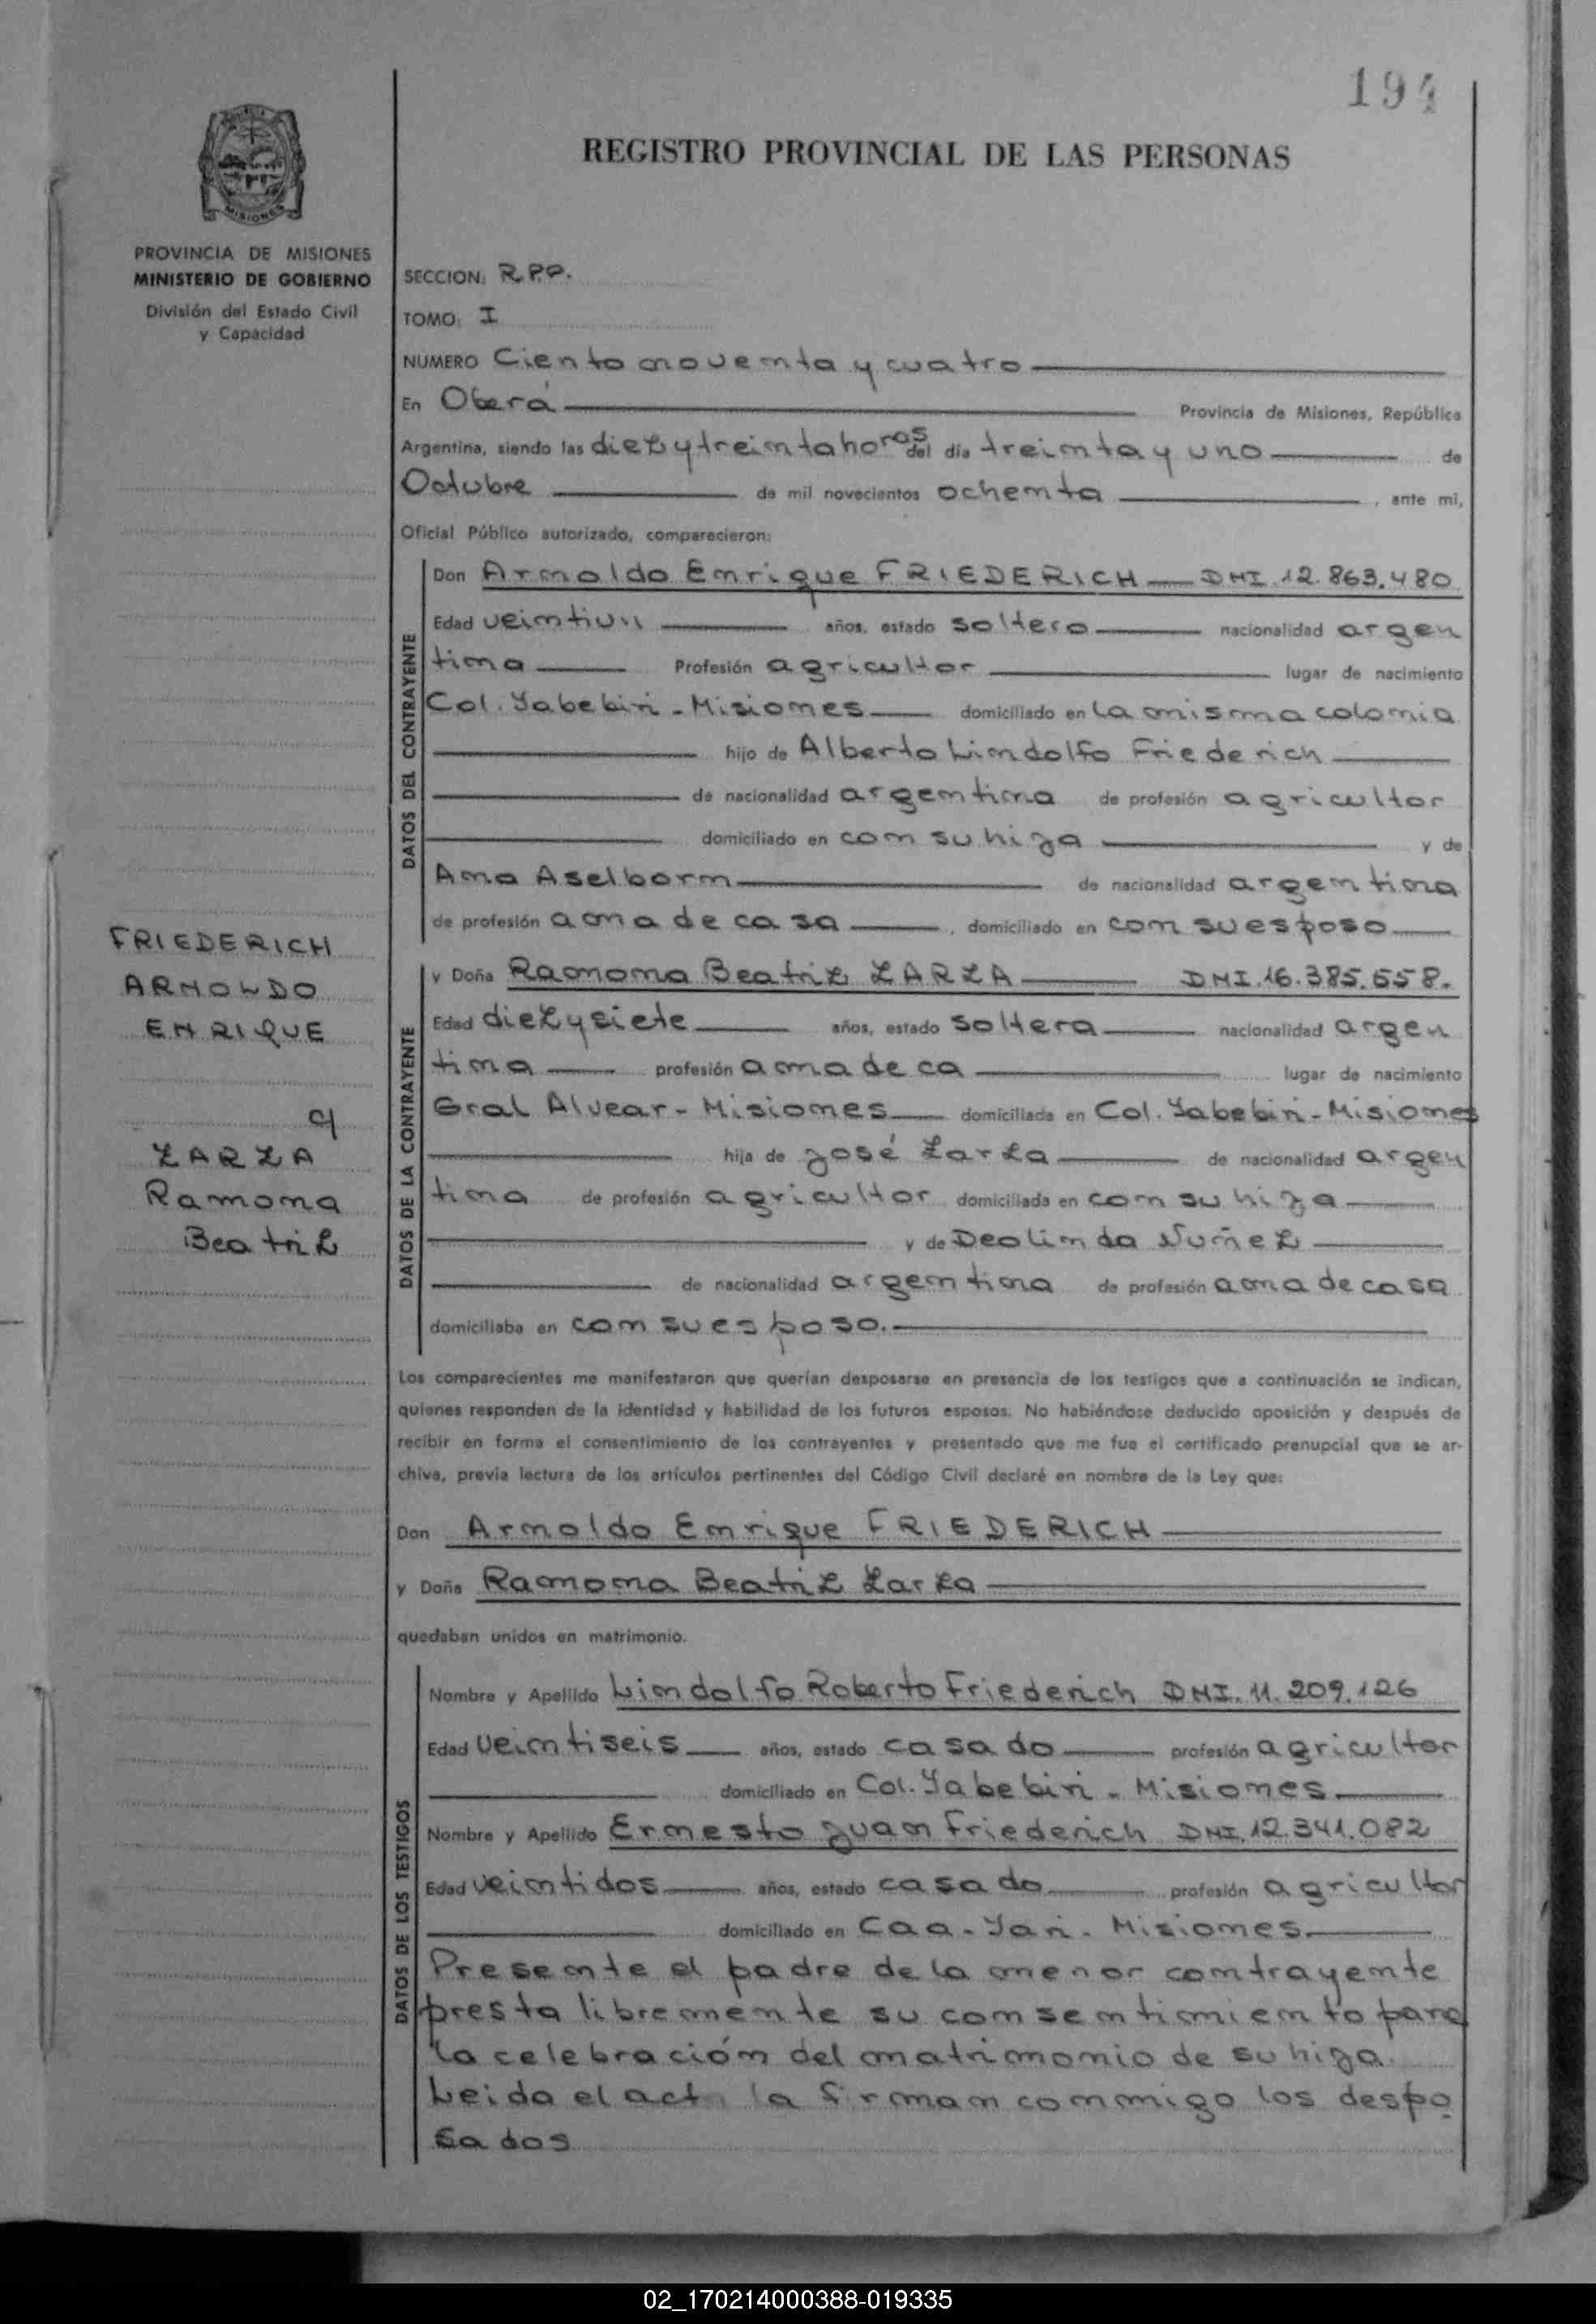 194
REGISTRO PROVINCIAL DE LAS PERSONAS
MISIONES
PROVINCIA DE MISIONES
MINISTERIO DE GOBIERNO
División del Estado Civil
y Capacidad
SECCION: R.P.P.
TOMO: I
NUMERO Ciento noventa y cuatro
En Oberá Provincia de Misiones, República
Argentina, siendo las diez y treinta horas del día treinta y uno de
Octubre de mil novecientos ochenta , ante mi,
Oficial Público autorizado, comparecieron:
DATOS DEL CONTRAYENTE
Don Arnoldo Enrique FRIEDERICH DNI. 12.863.480
Edad veintiun años, estado soltero nacionalidad argen
tina Profesión agricultor lugar de nacimiento
Col. Yabebiri - Misiones domiciliado en la misma colonia
hijo de Alberto Lindolfo Friederich
de nacionalidad argentina de profesión agricultor
domiciliado en con su hija y de
Ana Aselborn de nacionalidad argentina
de profesión ama de casa , domiciliado en con su esposo
FRIEDERICH
ARNOLDO
ENRIQUE
c/
ZARZA
Ramona
Beatriz
DATOS DE LA CONTRAYENTE
y Doña Ramona Beatriz ZARZA DNI. 16.385.658.
Edad diez y siete años, estado soltera nacionalidad argen
tina profesión ama de ca lugar de nacimiento
Gral Alvear - Misiones domiciliada en Col. Yabebiri - Misiones
hija de José Zarza de nacionalidad argen
tina de profesión agricultor domiciliada en con su hija
y de Deolinda Nuñez
de nacionalidad argentina de profesión ama de casa
domiciliaba en con su esposo.
Los comparecientes me manifestaron que querían desposarse en presencia de los testigos que a continuación se indican,
quienes responden de la identidad y habilidad de los futuros esposos. No habiéndose deducido oposición y después de
recibir en forma el consentimiento de los contrayentes y presentado que me fue el certificado prenupcial que se ar-
chiva, previa lectura de los artículos pertinentes del Código Civil declaré en nombre de la Ley que:
Don Arnoldo Enrique FRIEDERICH
y Doña Ramona Beatriz Zarza
quedaban unidos en matrimonio.
DATOS DE LOS TESTIGOS
Nombre y Apellido Lindolfo Roberto Friederich DNI. 11.209.126
Edad veintiseis años, estado casado profesión agricultor
domiciliado en Col. Yabebiri - Misiones
Nombre y Apellido Ernesto Juan Friederich DNI. 12.341.082
Edad veintidos años, estado casado profesión agricultor
domiciliado en Caa - Yari - Misiones
Presente el padre de la menor contrayente
presta libremente su consentimiento para
la celebración del matrimonio de su hija.
Leida el acta la firman conmigo los despo
sados
02_170214000388-019335